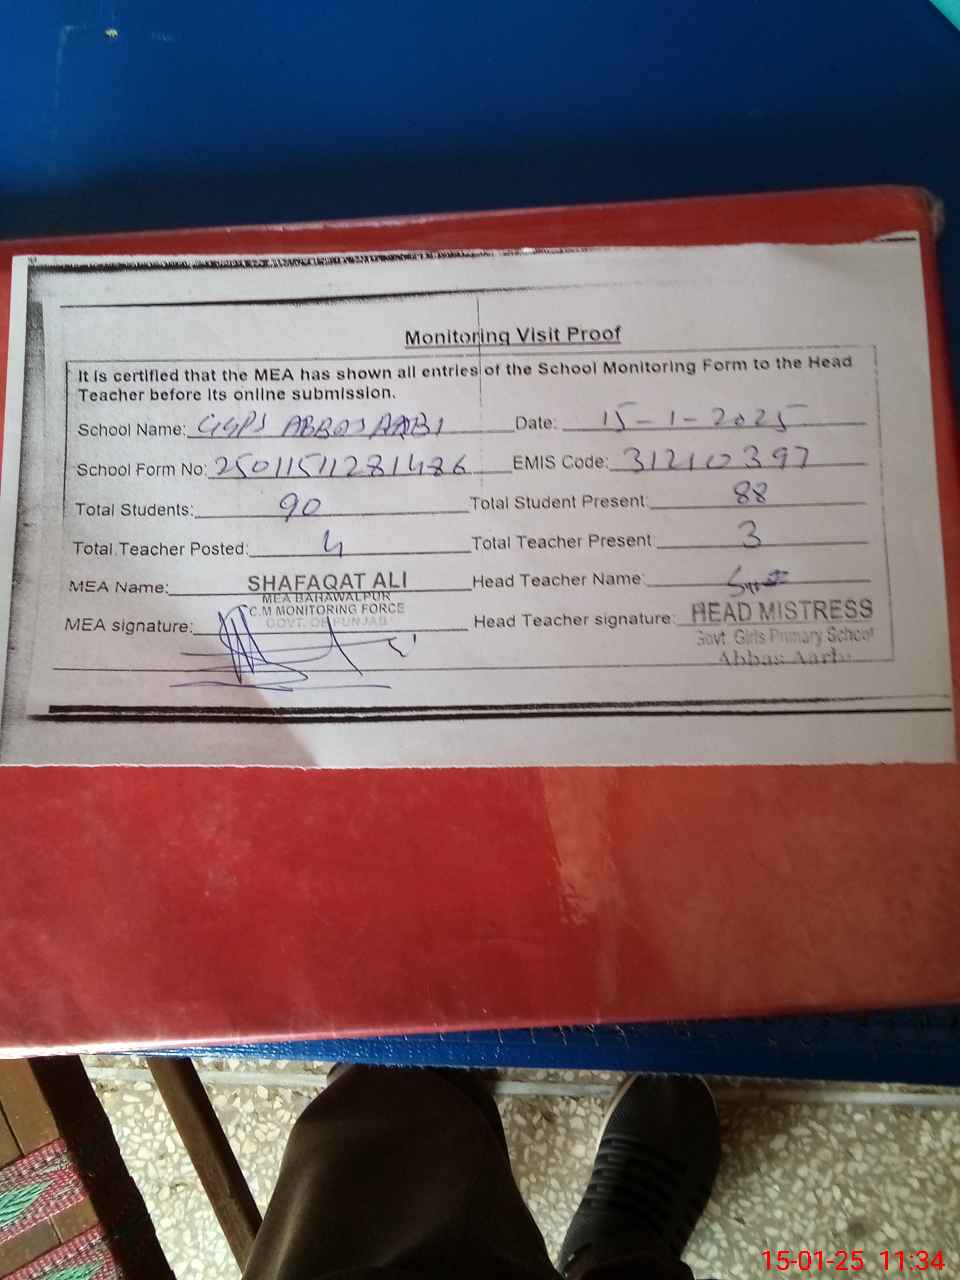 Monitoring Visit Proof
It is certified that the MEA has shown all entries of the School Monitoring Form to the Head
Teacher before its online submission.
School Name: GGPS ABBAS AARBI Date: 15-1-2025
School Form No: 25011511281486 EMIS Code: 31210397
Total Students: 90 Total Student Present: 88
Total Teacher Posted: 4 Total Teacher Present: 3
MEA Name: SHAFAQAT ALI Head Teacher Name:
MEA BAHAWALPUR
C.M MONITORING FORCE
GOVT. OF PUNJAB
MEA signature: Head Teacher signature: HEAD MISTRESS
Govt. Girls Primary School
Abbas Aarbi
15-01-25 11:34